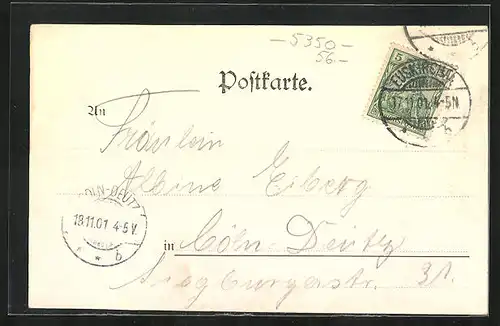 -5350-
56.-
Postkarte.
5
17.11.01. 4-5N
b
An
Fräulein
Albine Eiberg
CÖLN-DEUTZ
18.11.01 4-5V.
* * b
in Cöln-Deutz
Siegburgerstr. 31.